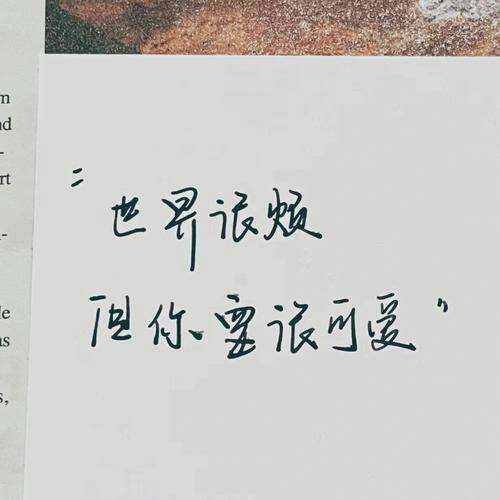 "世界很烦
但你要很可爱"
rn
nd
-
rt
-
le
as
s,